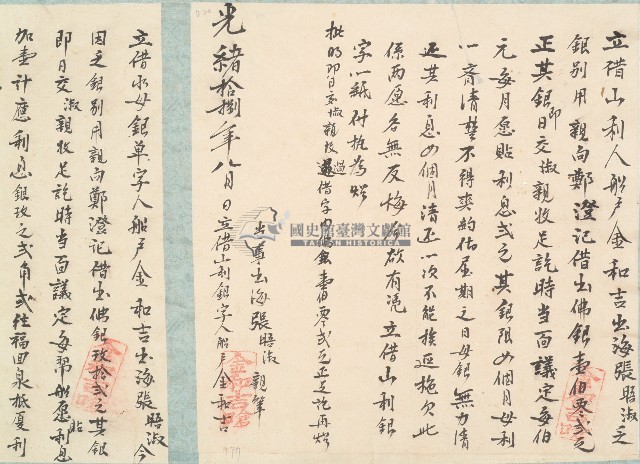 立借山利人船戶金和吉出海張晤淑乏
銀別用親向鄭澄記借出佛銀壹伯零弍元
正其銀即日交淑親收足訖時当面議定每伯
元每月愿貼利息弍元其銀限四個月母利
一齊清楚不得爽約佑屋期之日母銀無力清
还其利息四個月清还一次不能挨延拖欠此
係兩愿各無反悔何欲有凭立借山利銀
字一紙付执為炤
批明即日交淑親收過借字內佛銀壹伯零弍元正足訖再炤
当事出海張晤淑親筆
光緒拾捌年八月 日立借山利銀字人船戶金和吉
立借水母銀单字人船戶金和吉出海張晤淑今
因乏銀別用親向鄭澄記借出佛銀玫拾弍元其銀
即日交淑親收足訖時当面議定每幫船愿貼利息
加壹計應利息銀玫元弍角弍往福田泉抵厦利
國史館臺灣文獻館
TAIWAN HISTORICA